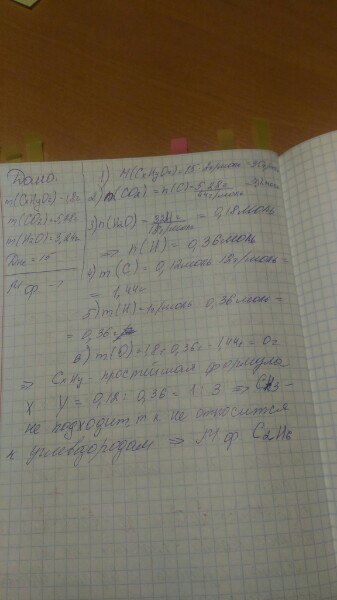 Дано:
m(CxHyOz)=1,8г
m(CO2)=5,28г
m(H2O)=3,24г
DH2=15
М.ф. -?
1) M(CxHyOz)=15·2г/моль=30г/моль
2) n(CO2)=n(C)=5,28г/44г/моль=0,12моль
3) n(H2O)=3,24г/18г/моль=0,18моль
=> n(H)=0,36моль
4) m(C)=0,12моль·12г/моль=
=1,44г
5) m(H)=1г/моль·0,36моль=
=0,36г
6) m(O)=1,8г-0,36г-1,44г=0г
=> CxHy - простейшая формула
X : Y = 0,18 : 0,36 = 1 : 3 => CH3 -
не подходит, т.к. не относится
к углевдородам => М.ф. C2H6